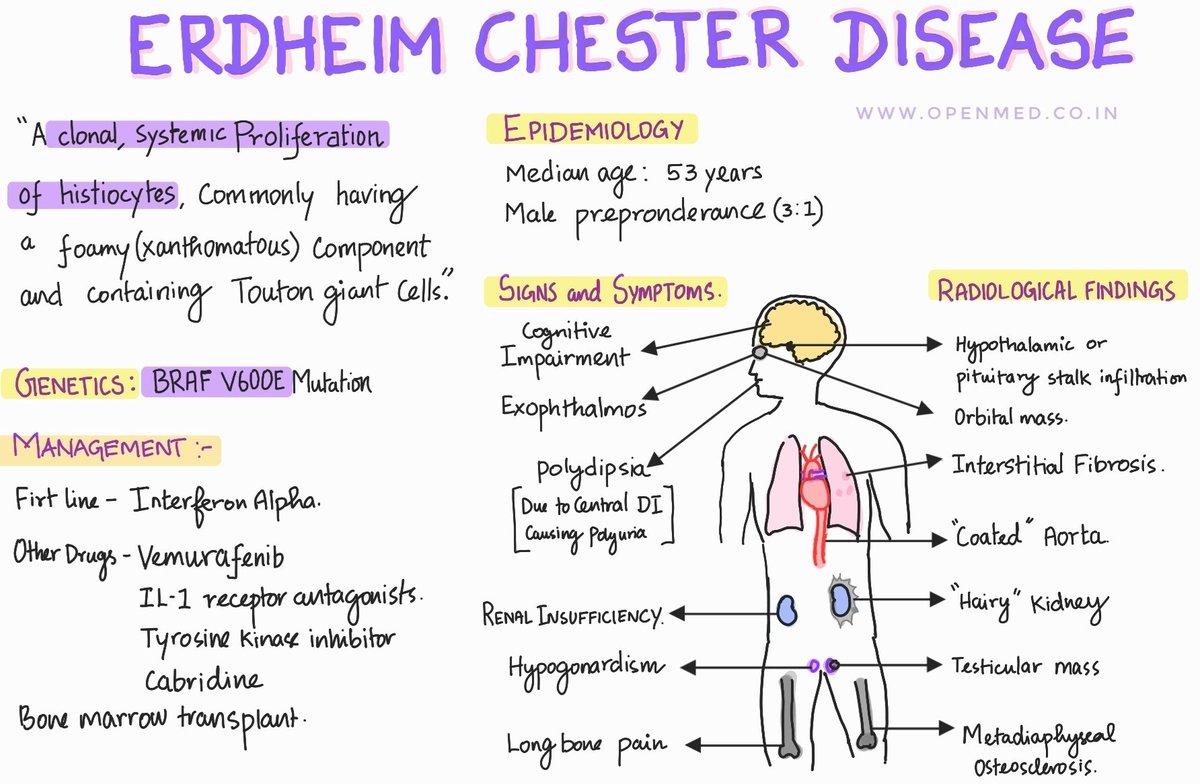 ERDHEIM CHESTER DISEASE
WWW.OPENMED.CO.IN
"A clonal, systemic Proliferation
of histiocytes, Commonly having
a foamy (xanthomatous) Component
and containing Touton giant cells."
GENETICS: BRAF V600E Mutation
MANAGEMENT :-
Firt line - Interferon Alpha.
Other Drugs - Vemurafenib
IL-1 receptor antagonists.
Tyrosine Kinase inhibitor
Cabridine
Bone marrow transplant.
EPIDEMIOLOGY
Median age: 53 years
Male prepronderance (3:1)
SIGNS and SYMPTOMS.
Cognitive
Impairment
Exophthalmos
Polydipsia
[Due to Central DI
Causing Polyuria]
RENAL INSUFFICIENCY.
Hypogonardism
Long bone pain
RADIOLOGICAL FINDINGS
Hypothalamic or
pituitary stalk infiltration
Orbital mass.
Interstitial Fibrosis.
"Coated" Aorta.
"Hairy" Kidney
Testicular mass
Metadiaphyseal
Osteosclerosis.